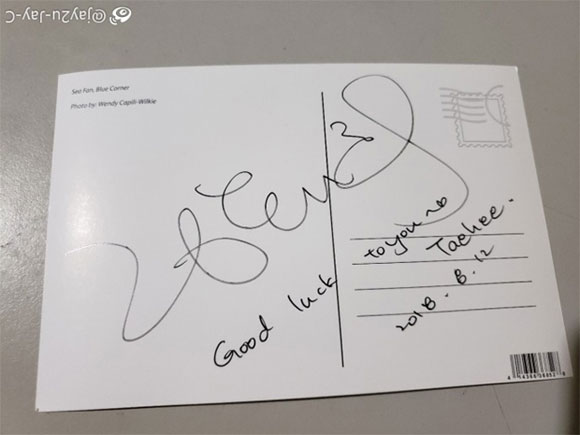 @jay2u-Jay-C
Sea Fan, Blue Corner
Photo by: Wendy Capili-Wilkie
Good luck to you ~
Taehee.
2018. 8. 12